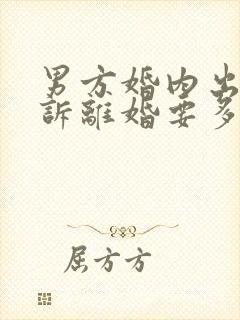 男方婚内出
訴離婚要多
屈方方